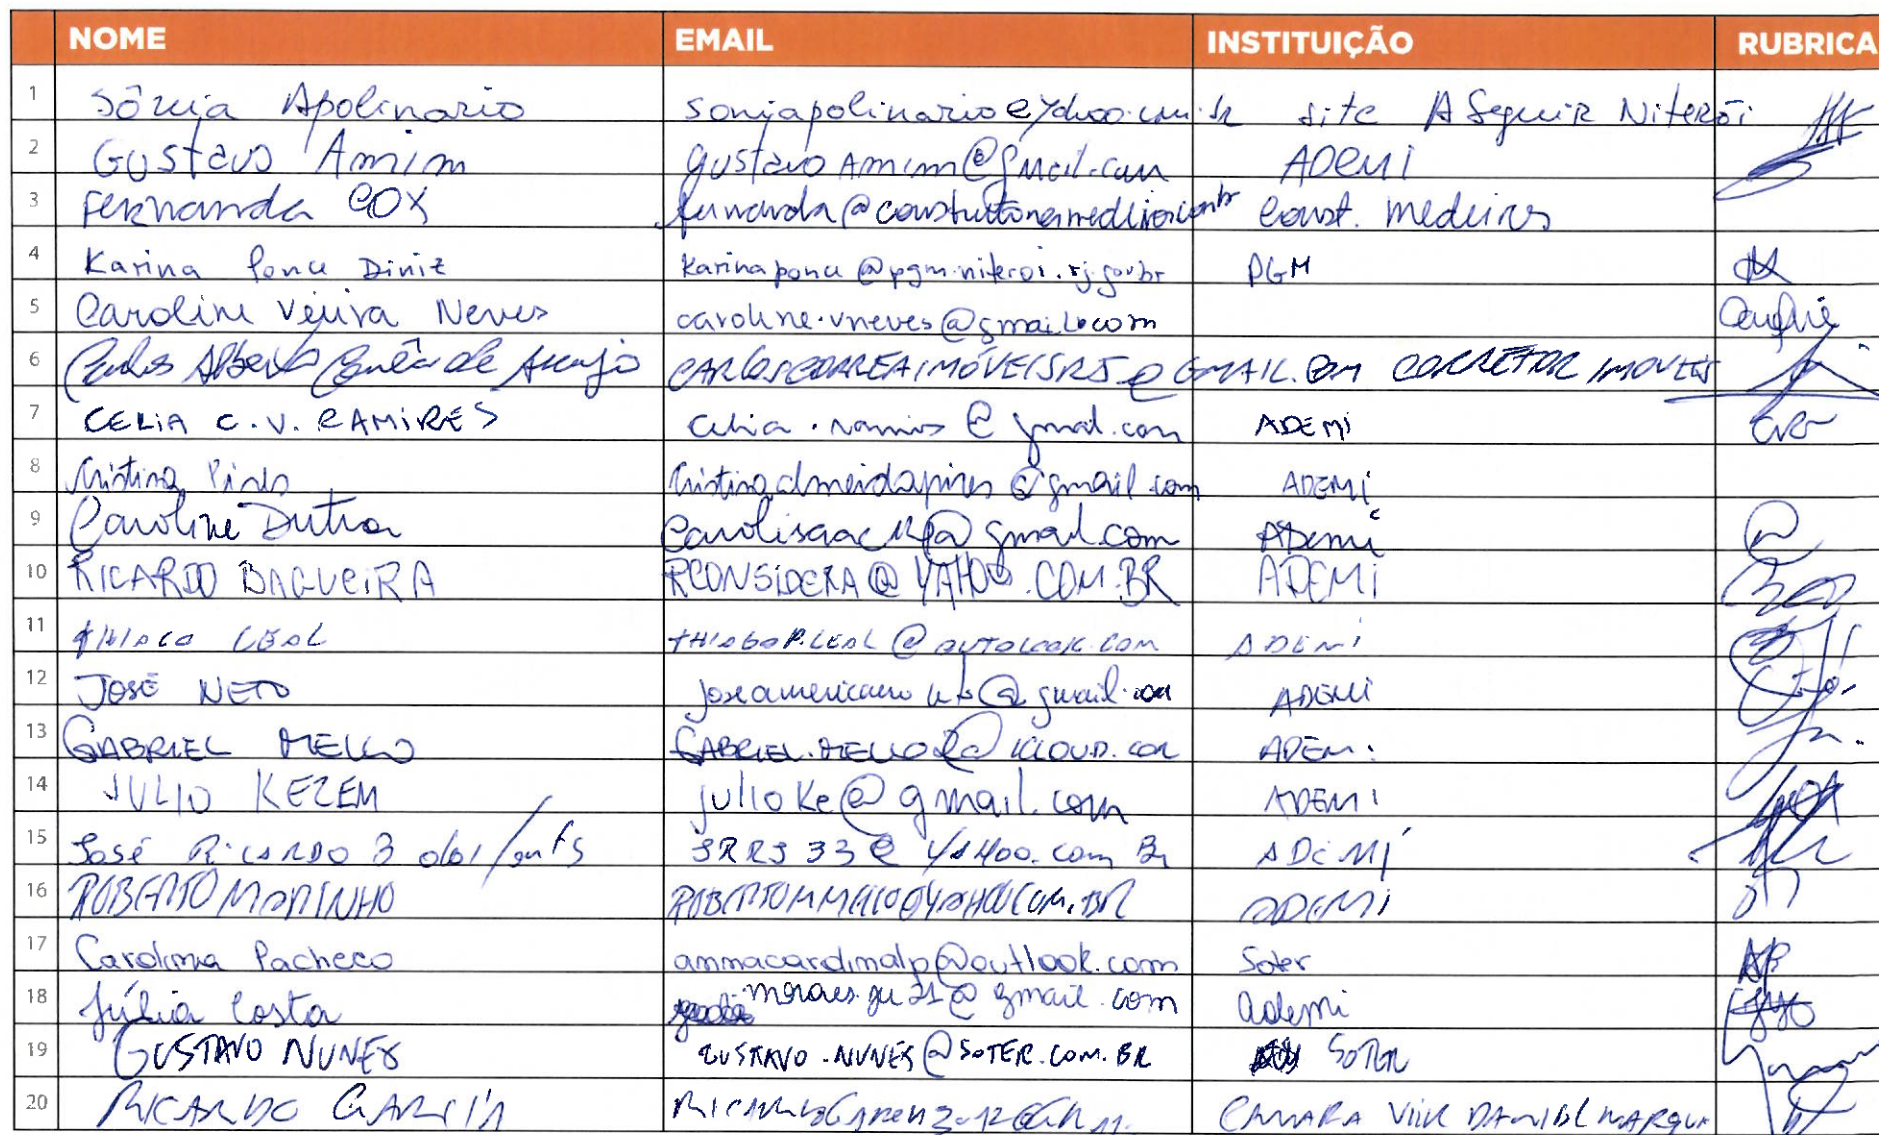 NOME EMAIL INSTITUIÇÃO RUBRICA
1 Sônia Apolinario soniapolinario@yahoo.com.br site A Seguir Niterói
2 Gustavo Amim gustavoAmim@gmail.com ADEMI
3 Fernanda COX fernanda@construtoramedeiros.com.br Const. Medeiros
4 Karina Ponce Diniz Karinaponce@pgm.niteroi.rj.gov.br PGM
5 Caroline Vieira Neves caroline.vneves@gmail.com
6 Carlos Alberto Corrêa de Araujo CARLOSCORREAIMÓVEISRJ@GMAIL.COM CORRETOR IMOVEIS
7 CELIA C.V. RAMIRES celia.ramires@gmail.com ADEMI
8 Cristina Pires cristinaalmeidapires@gmail.com ADEMI
9 Caroline Dutra @gmail.com ADemi
10 RICARDO BAGUEIRA RCONSIDERA@YAHOO.COM.BR ADEMI
11 THIAGO LEAL THIAGOP.LEAL@OUTLOOK.COM ADEMI
12 JOSÉ NETO @gmail.com ADEMI
13 GABRIEL MELLO ADEMI
14 JULIO KEZEM julioke@gmail.com ADEMI
15 José RICARDO ADEMI
16 ROBERTO MARINHO ADEMI
17 Carolina Pacheco ammacardimalp@outlook.com Soter
18 Júlia Costa moraes.gu21@gmail.com ademi
19 GUSTAVO NUNES GUSTAVO.NUNES@SOTER.COM.BR SOTER
20 RICARDO GARCIA CAMARA